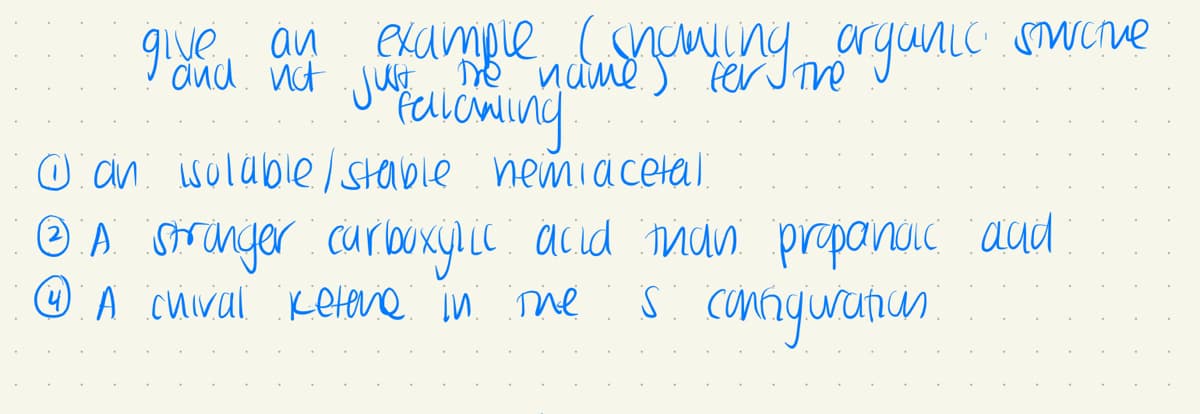 give an example (showing organic structure
and not just the name) for the
following
① an isolable/stable hemiacetal
② A stronger carboxylic acid than propanoic acid
④ A chiral ketone in the S configuration